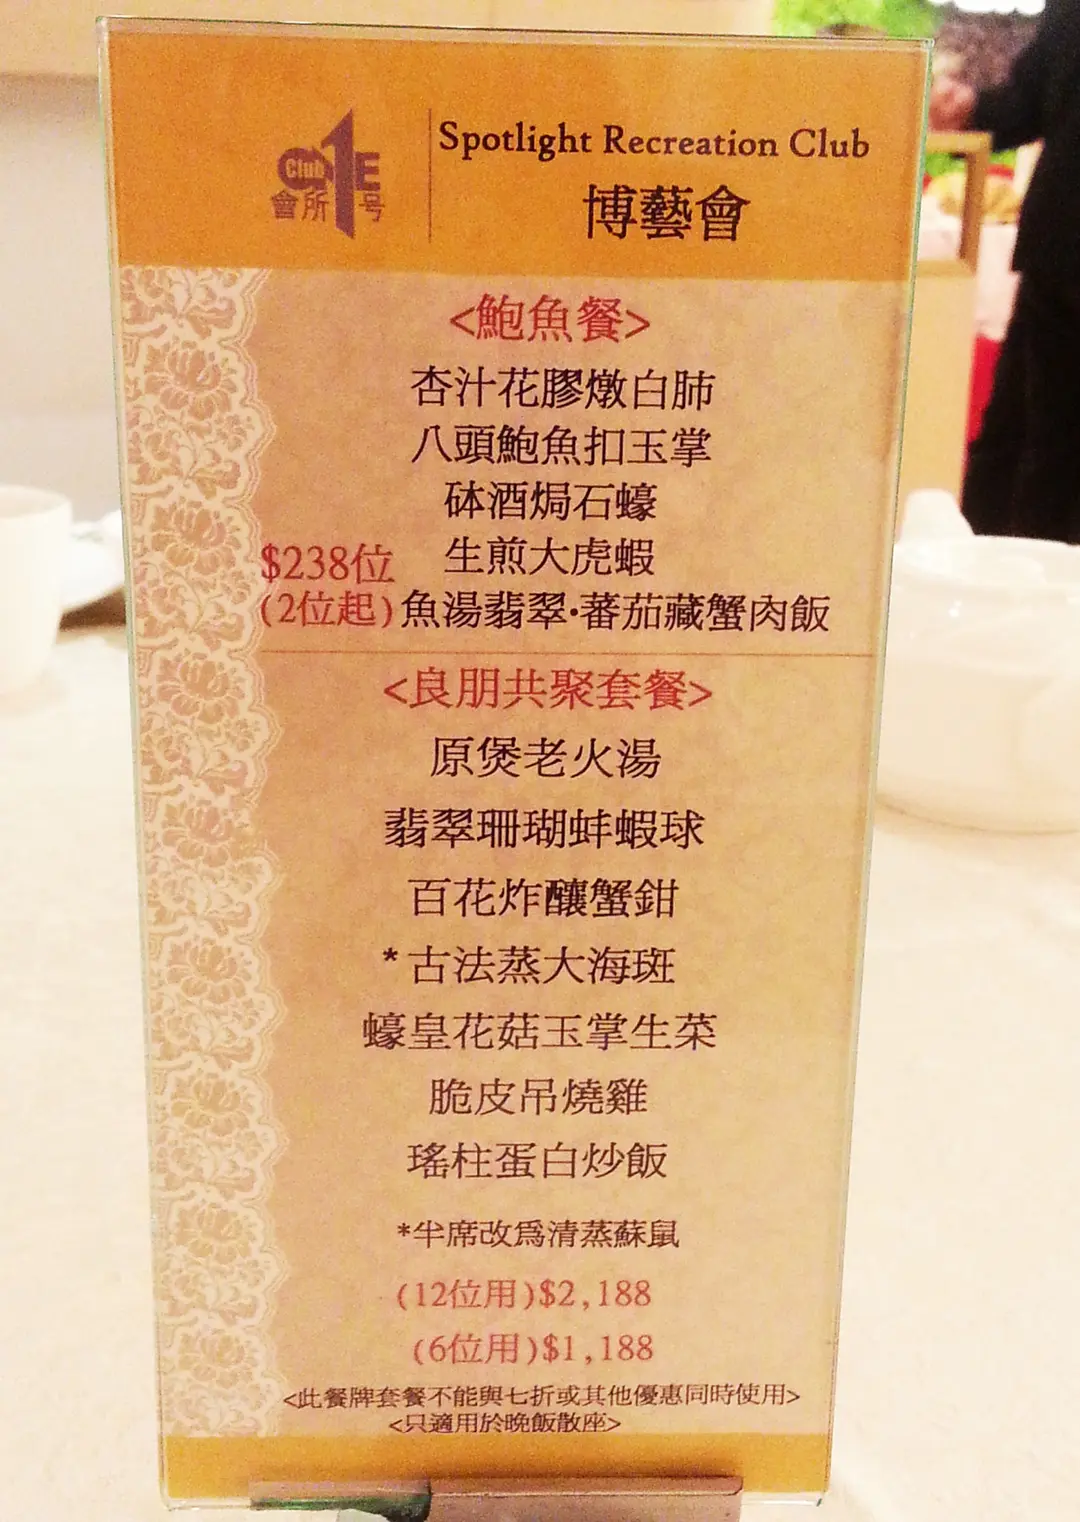 Club ONE
會所1号
Spotlight Recreation Club
博藝會
<鮑魚餐>
杏汁花膠燉白肺
八頭鮑魚扣玉掌
砵酒焗石蠔
生煎大虎蝦
$238位
(2位起)魚湯翡翠·蕃茄藏蟹肉飯
<良朋共聚套餐>
原煲老火湯
翡翠珊瑚蚌蝦球
百花炸釀蟹鉗
*古法蒸大海斑
蠔皇花菇玉掌生菜
脆皮吊燒雞
瑤柱蛋白炒飯
*半席改爲清蒸蘇鼠
(12位用)$2,188
(6位用)$1,188
<此餐牌套餐不能與七折或其他優惠同時使用>
<只適用於晚飯散座>